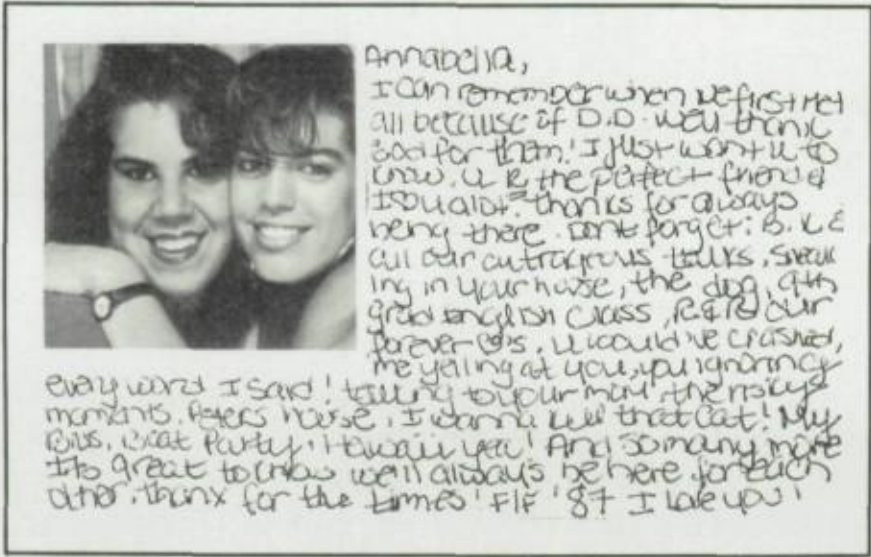 Annabella,
I can remember when we first met
all because of D.D. well thank
God for them! I just want u to
know, u R the perfect friend &
I u alot. thanks for always
being there. Dont forget: B.K &
all our outrageous talks, sneak
ing in your house, the dog, 9th
grad english class, R&R our
forever, u would've crashed,
me yelling at you, you ignoring
every word I said! talking to your mom, the risky
moments, Peters house, I wanna kill that cat! My
Boat Party, Hawaii yea! And so many more
Its great to know we'll always be here for each
other. thanx for the times! F/F '87 I love you!